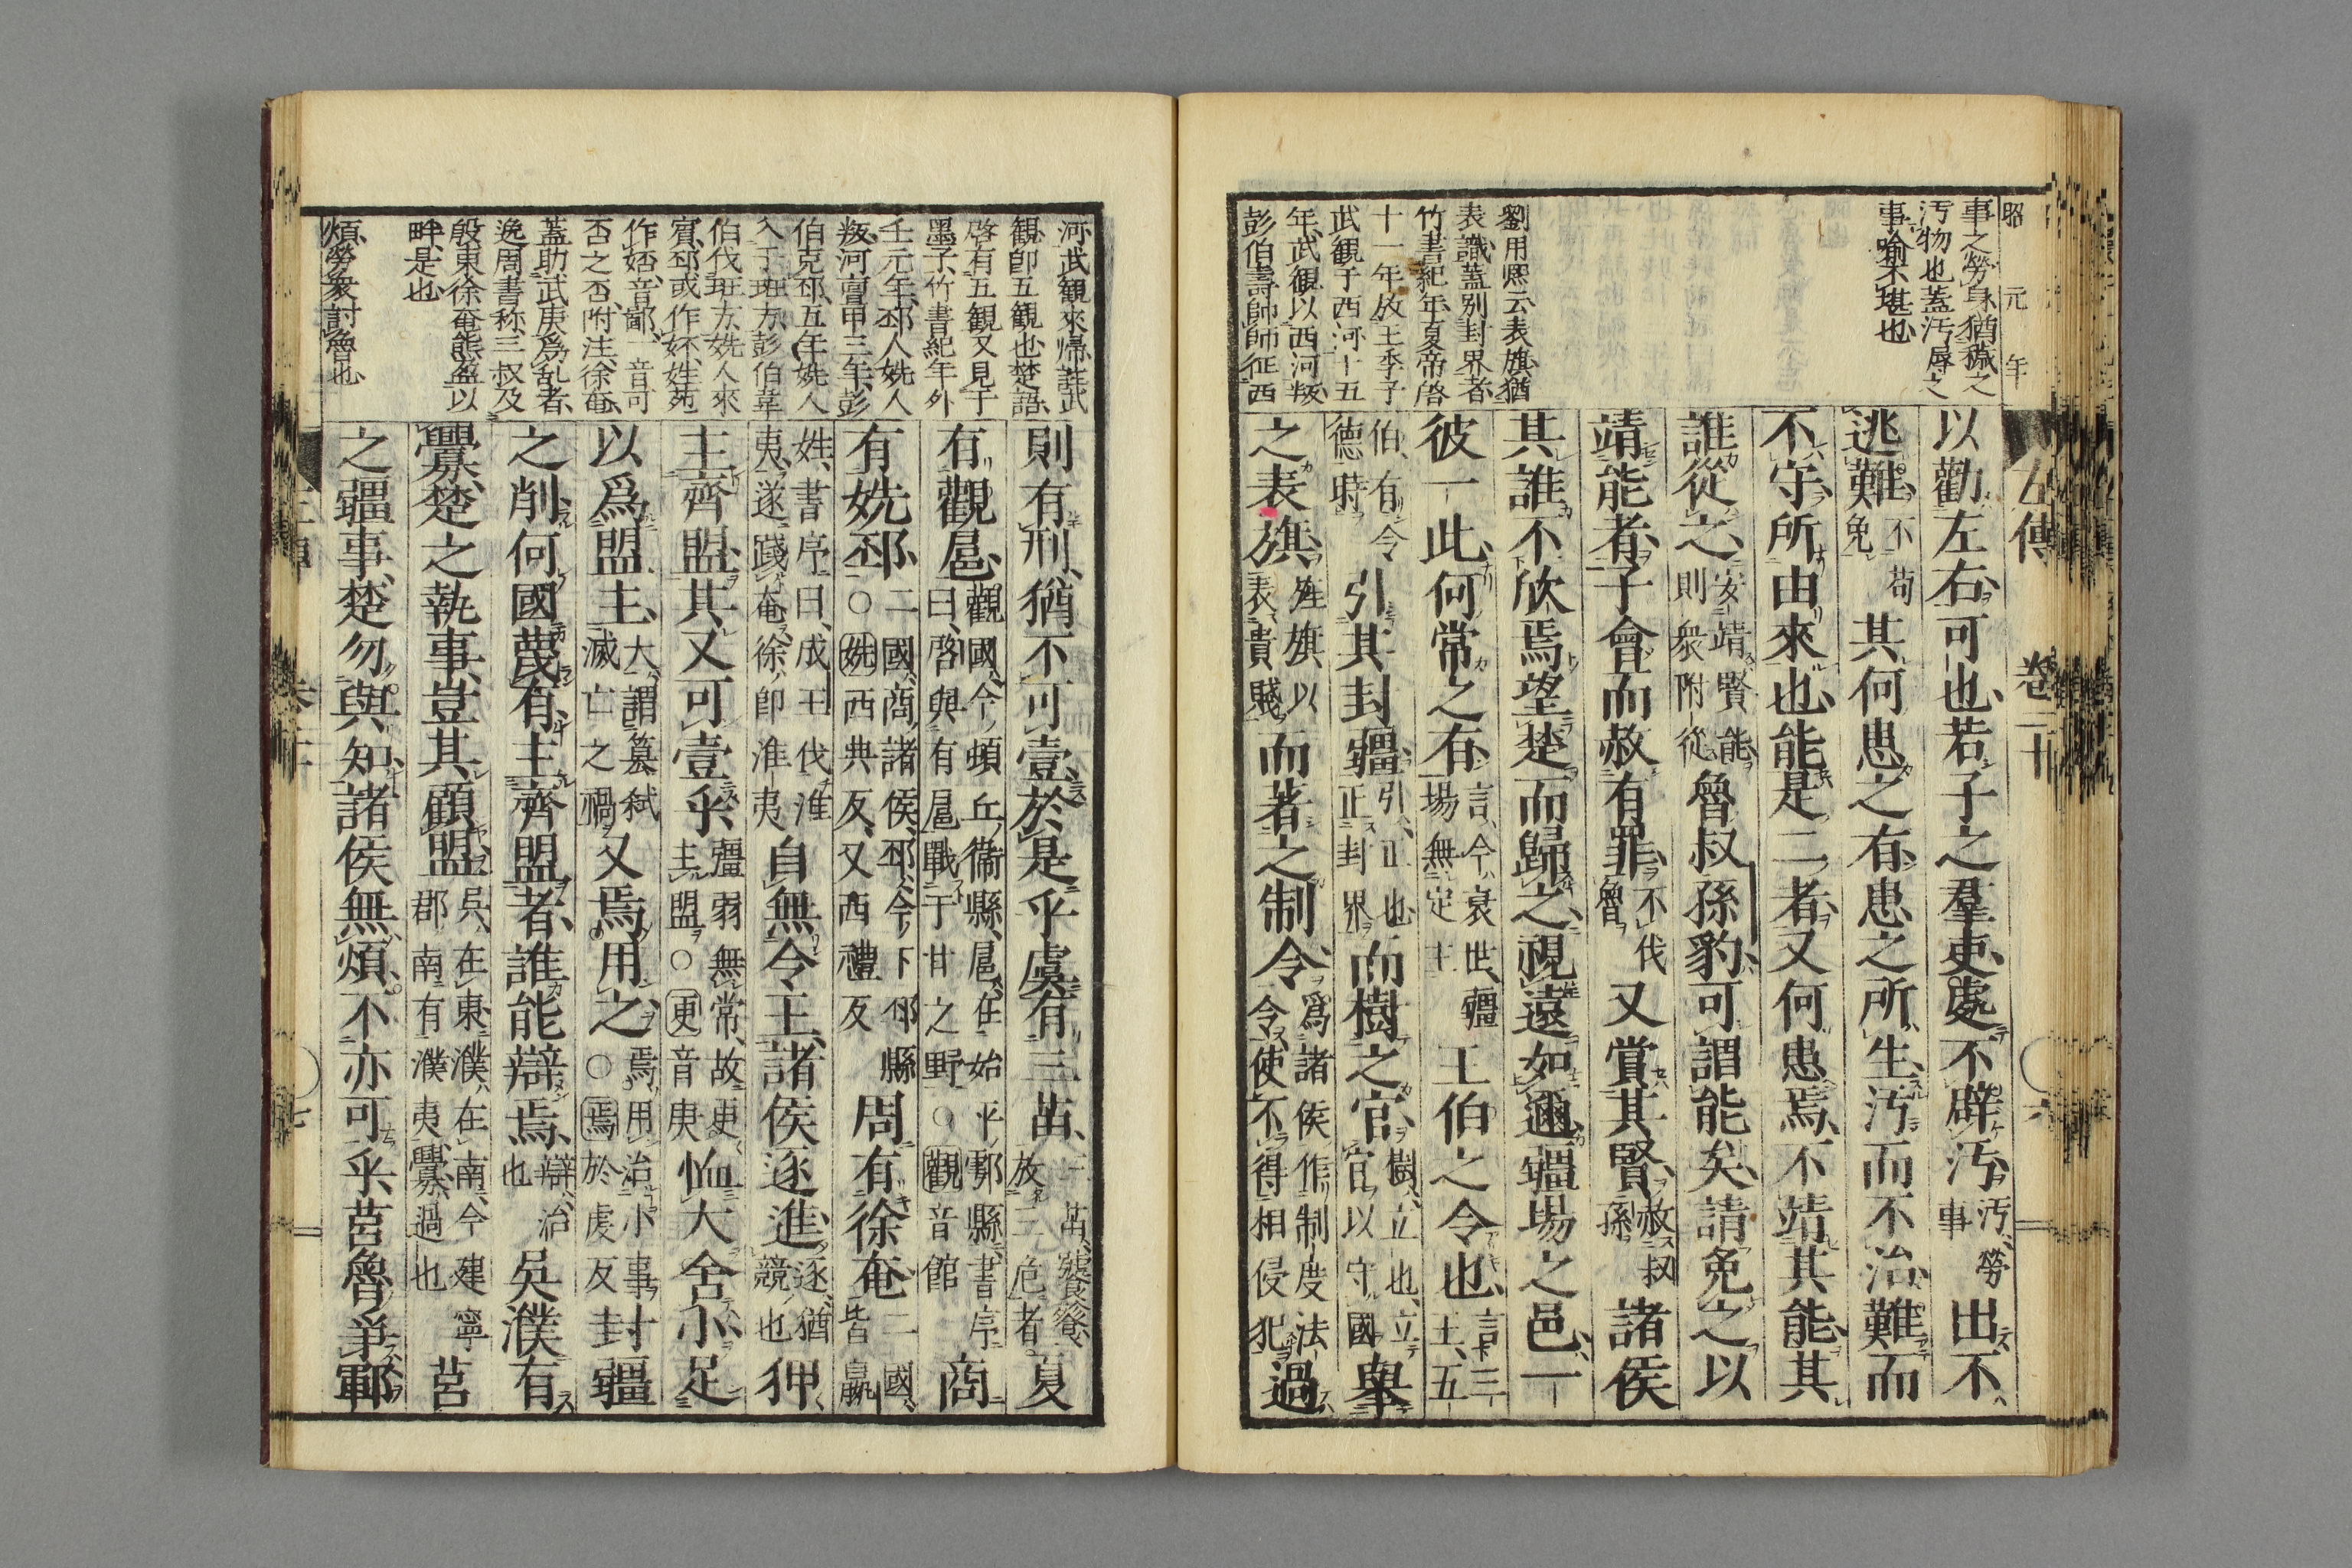 昭元年
左傳 卷二十 六
事之勞身猶穢之
汚物也蓋汚辱之
事喻不堪也
劉用熈云表旗猶
表識蓋別封界者
竹書紀年夏帝啓
十一年放王季子
武觀于西河十五
年武觀以西河叛
彭伯壽帥師征西
以勸左右可也若子之羣吏處不辟汚汚勞事出不
逃難不苟免其何患之有患之所生汚而不治難而
不守所由來也能是二者又何患焉不靖其能其
誰從之安靖賢能則衆附從魯叔孫豹可謂能矣請免之以
靖能者子會而赦有罪不伐魯又賞其賢赦叔孫諸侯
其誰不欣焉望楚而歸之視遠如邇疆場之邑一
彼一此何常之有言今衰世疆場無定主王伯之令也言三王五
伯有令德時引其封疆引正也正封界而樹之官樹立也立官以守國舉
之表旗旌旗以表貴賤而著之制令爲諸侯作制度法令使不得相侵犯過
河武觀來歸註武
觀卽五觀也楚語
啓有五觀又見于
墨子竹書紀年外
壬元年邳人姺人
叛河亶甲三年彭
伯克邳五年姺人
入于班方彭伯韋
伯伐班方姺人來
賓邳或作𡛟姓苑
作娝音鄙一音可
否之否附注徐奄
蓋助武庚爲亂者
逸周書称三叔及
殷東徐奄熊盈以
畔是也
煩勞衆討魯也
則有刑猶不可壹於是乎虞有三苗三苗饕餮放三危者夏
有觀扈觀國今頓丘衞縣扈在始平鄠縣書序曰啓與有扈戰于甘之野○觀音館商
有姺邳二國商諸侯邳今下邳縣○姺西典反又西禮反周有徐奄二國皆嬴
姓書序曰成王伐淮夷遂踐奄徐卽淮夷自無令王諸侯逐進逐猶競也狎
主齊盟其又可壹乎彊弱無常故更主盟○更音庚恤大舍小足
以爲盟主大謂篡弒滅亡之禍又焉用之焉用治小事○焉於虔反封疆
之削何國蔑有主齊盟者誰能辯焉辯治也吳濮有
釁楚之執事豈其顧盟吳在東濮在南今建寧郡南有濮夷釁過也莒
之疆事楚勿與知諸侯無煩不亦可乎莒魯爭鄆